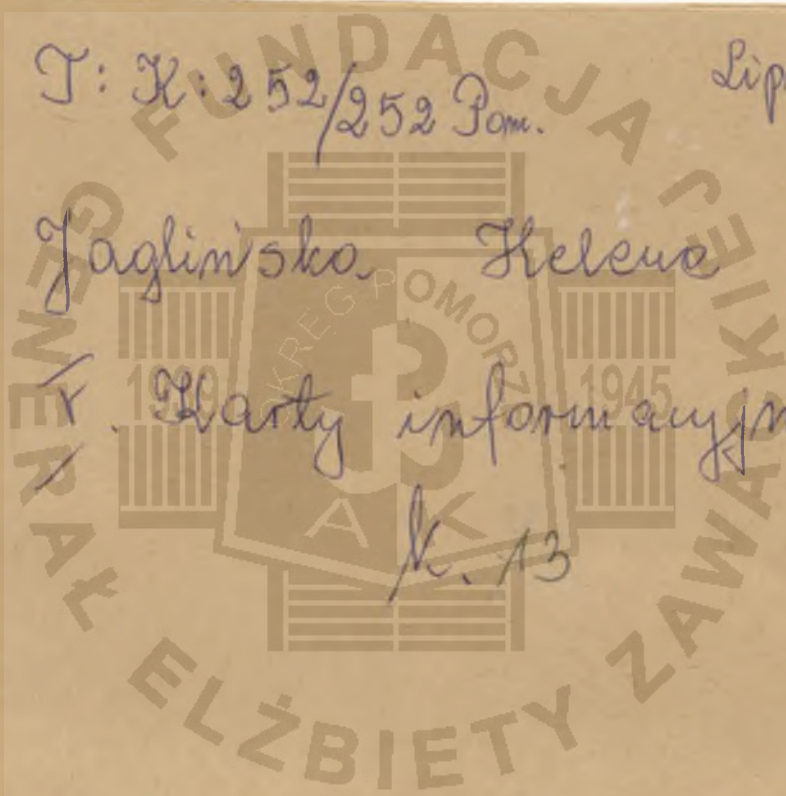 T: K: 252/252 Pom. Lip
Jaglińska Helena
V. Karty informacyjn
k. 13
FUNDACJA GENERAŁ ELŻBIETY ZAWACKIEJ
OKRĘG POMORZE
1939 1945
AK